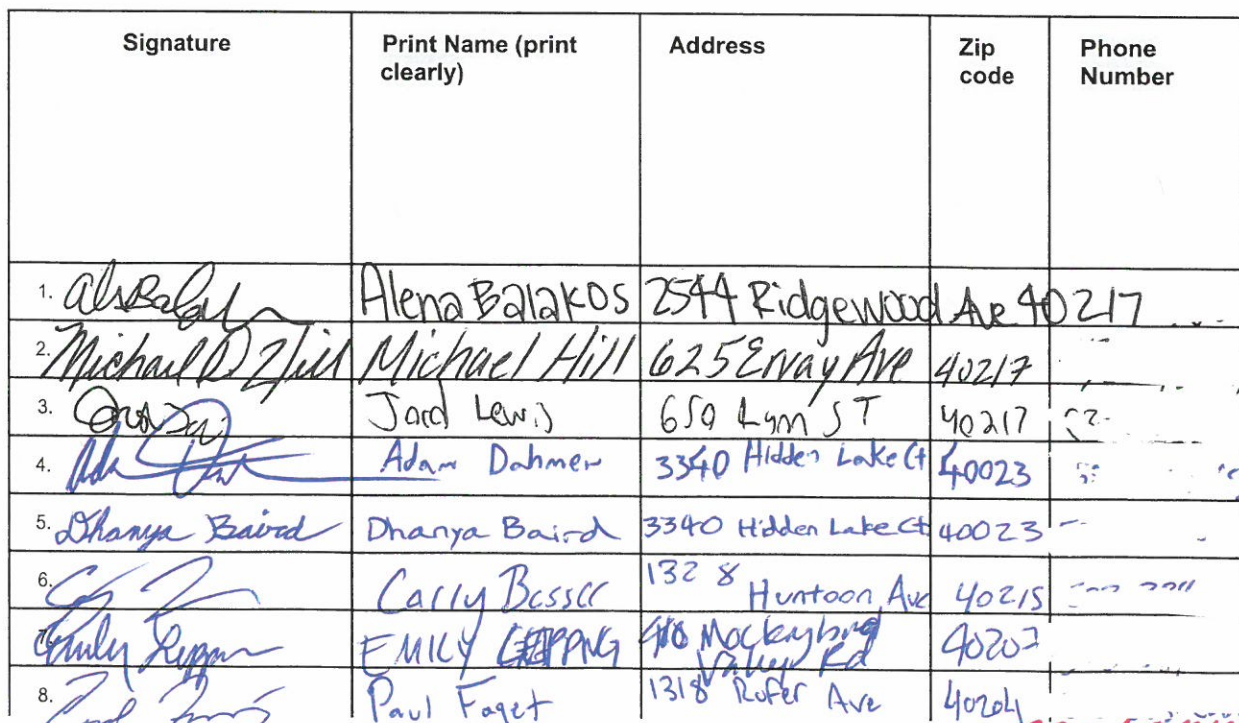 Signature Print Name (print clearly) Address Zip code Phone Number
1. Alena Balakos 2544 Ridgewood Ave 40217
2. Michael D Hill Michael Hill 625 Ervay Ave 40217
3. Lewis 650 Lynn ST 40217
4. Adam Dahmer 3340 Hidden Lake Ct 40023
5. Dhanya Baird Dhanya Baird 3340 Hidden Lake Ct 40023
6. 1328 Huntoon Ave 40215
7. Emily EMILY Mockingbird Valley Rd 40207
8. Paul Faget 1318 Rufer Ave 40204